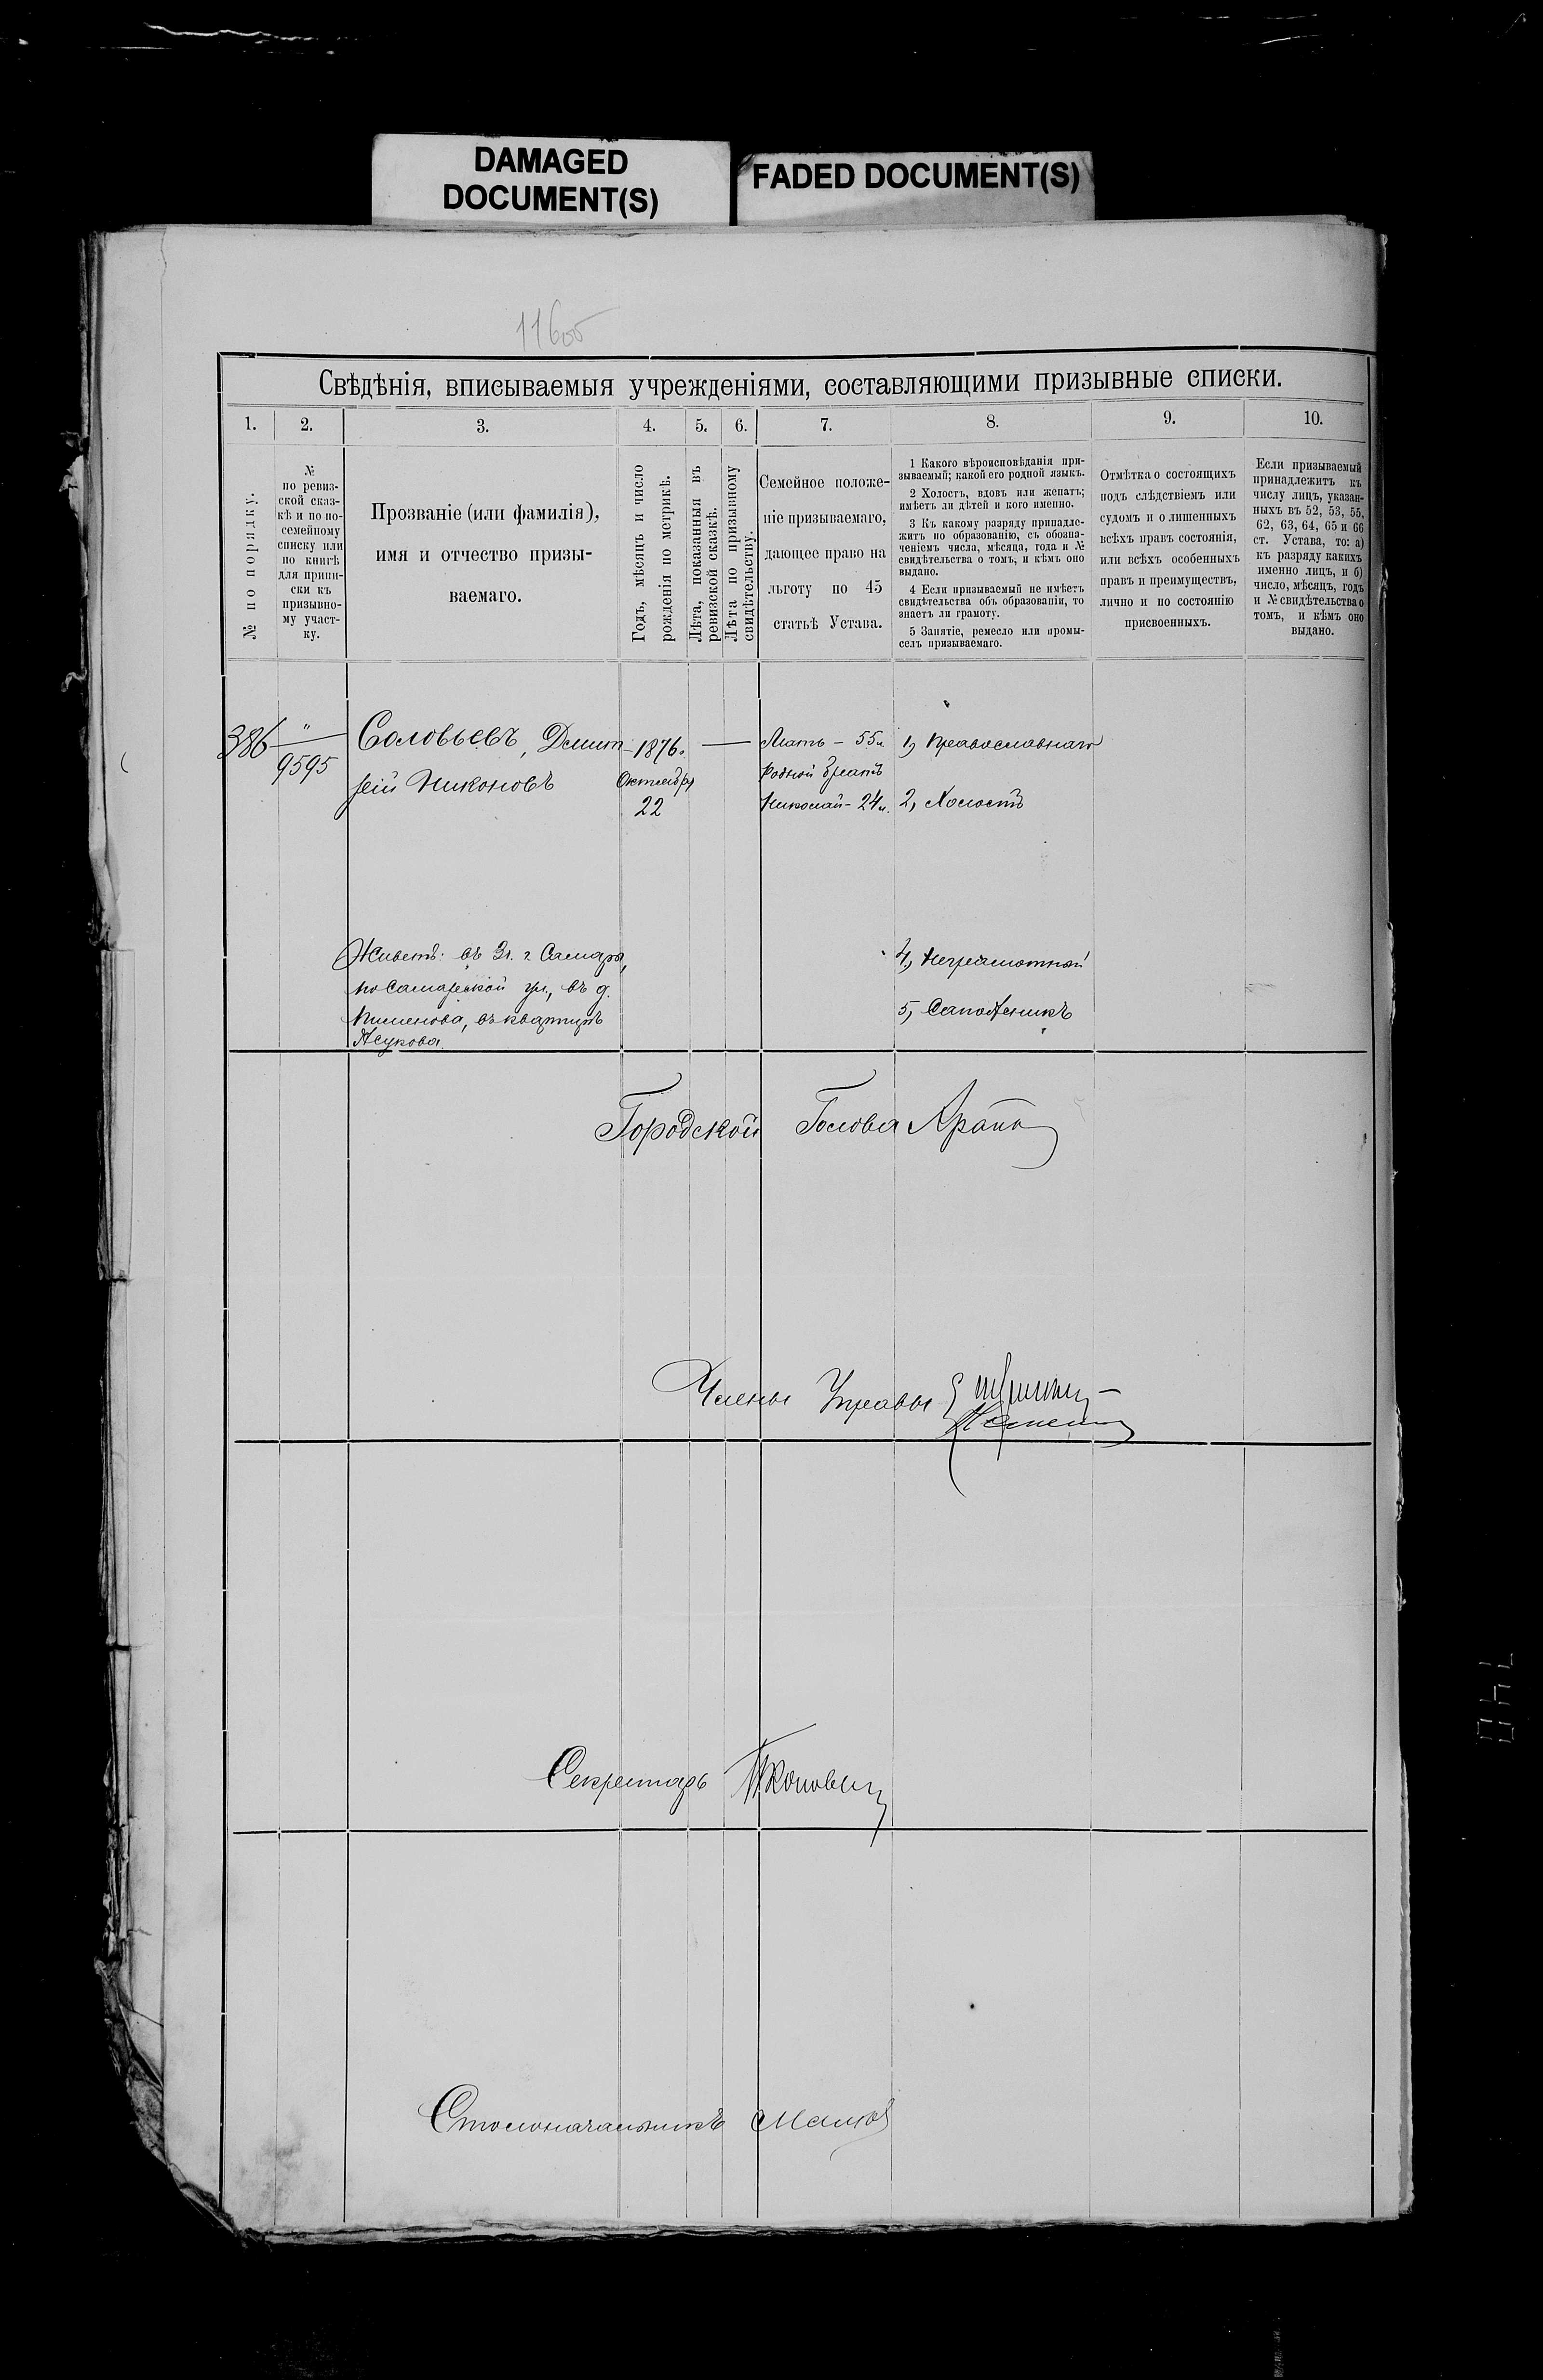 DAMAGED
DOCUMENT(S)
FADED DOCUMENT(S)
Свѣдѣнія, вписываемыя учрежденіями, составляющими призывные списки.
1.
2.
3.
4.
5.
6.
7.
8.
9.
10.
№ по порядку.
№
по ревиз-
ской сказ-
кѣ и по по-
семейному
списку или
по книгѣ
для припи-
ски къ
призывно-
му участ-
ку.
Прозваніе (или фамилія),
имя и отчество призы-
ваемаго.
Годъ, мѣсяцъ и число
рожденія по метрикѣ.
Лѣта, показанныя въ
ревизской сказкѣ.
Лѣта по призывному
свидѣтельству.
Семейное положе-
ніе призываемаго,
дающее право на
льготу по 45
статьѣ Устава.
1 Какого вѣроисповѣданія при-
зываемый; какой его родной языкъ.
2 Холостъ, вдовъ или женатъ;
имѣетъ ли дѣтей и кого именно.
3 Къ какому разряду принадле-
житъ по образованію, съ обозна-
ченіемъ числа, мѣсяца, года и №
свидѣтельства о томъ, и кѣмъ оно
выдано.
4 Если призываемый не имѣетъ
свидѣтельства объ образованіи, то
знаетъ ли грамоту.
5 Занятіе, ремесло или промы-
селъ призываемаго.
Отмѣтка о состоящихъ
подъ слѣдствіемъ или
судомъ и о лишенныхъ
всѣхъ правъ состоянія,
или всѣхъ особенныхъ
правъ и преимуществъ,
лично и по состоянію
присвоенныхъ.
Если призываемый
принадлежитъ къ
числу лицъ, указан-
ныхъ въ 52, 53, 55,
62, 63, 64, 65 и 66
ст. Устава, то: а)
къ разряду какихъ
именно лицъ, и б)
число, мѣсяцъ, годъ
и № свидѣтельства о
томъ, и кѣмъ оно
выдано.
386
"
9595
Соловьевъ, Дмит-
рій Никоновъ
1876.
Октября
22
Мать - 55 л.
Родной братъ
Николай - 24 л.
1, Православнаго
2, Холостъ
Живетъ: въ г. Самарѣ,
по Самарской ул., въ д.
Пименова, въ квартирѣ
Жукова.
4, Неграмотный
5, Сапожникъ
Городской Голова
Члены Управы
Секретарь
Столоначальникъ
740